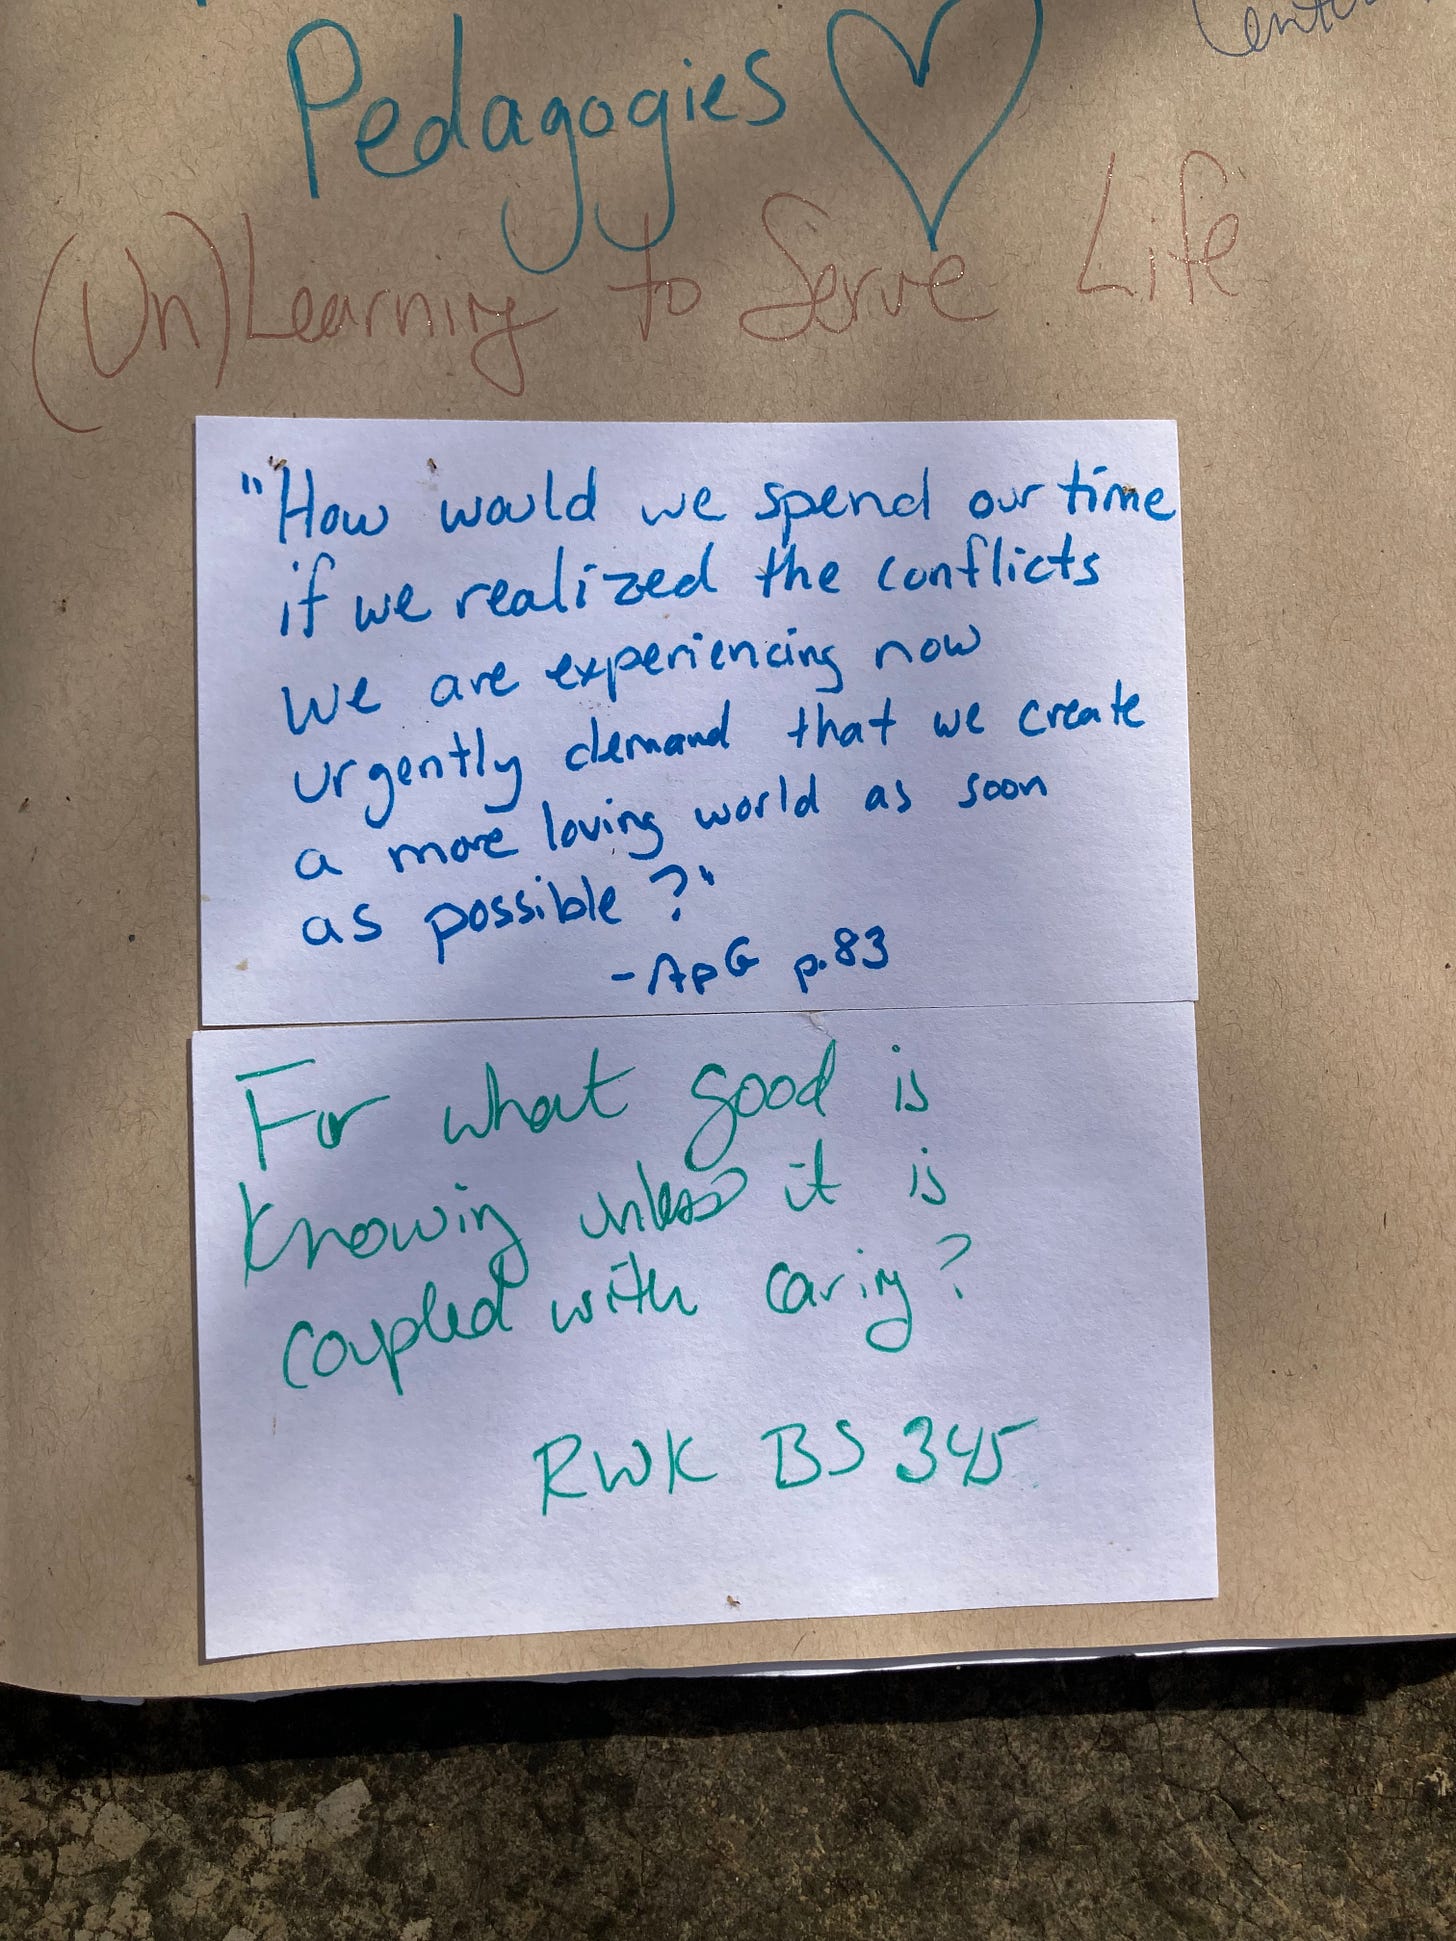 Pedagogies
(Un)Learning to Serve Life
"How would we spend our time
if we realized the conflicts
we are experiencing now
urgently demand that we create
a more loving world as soon
as possible?"
- ApG p.83
For what good is
knowing unless it is
coupled with caring?
RWK BS 345